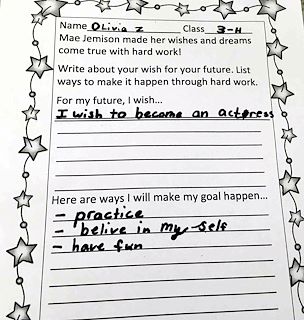 Name Olivia Z Class 3-H
Mae Jemison made her wishes and dreams
come true with hard work!
Write about your wish for your future. List
ways to make it happen through hard work.
For my future, I wish...
I wish to become an actpress
Here are ways I will make my goal happen...
- practice
- belive in my self
- have fun